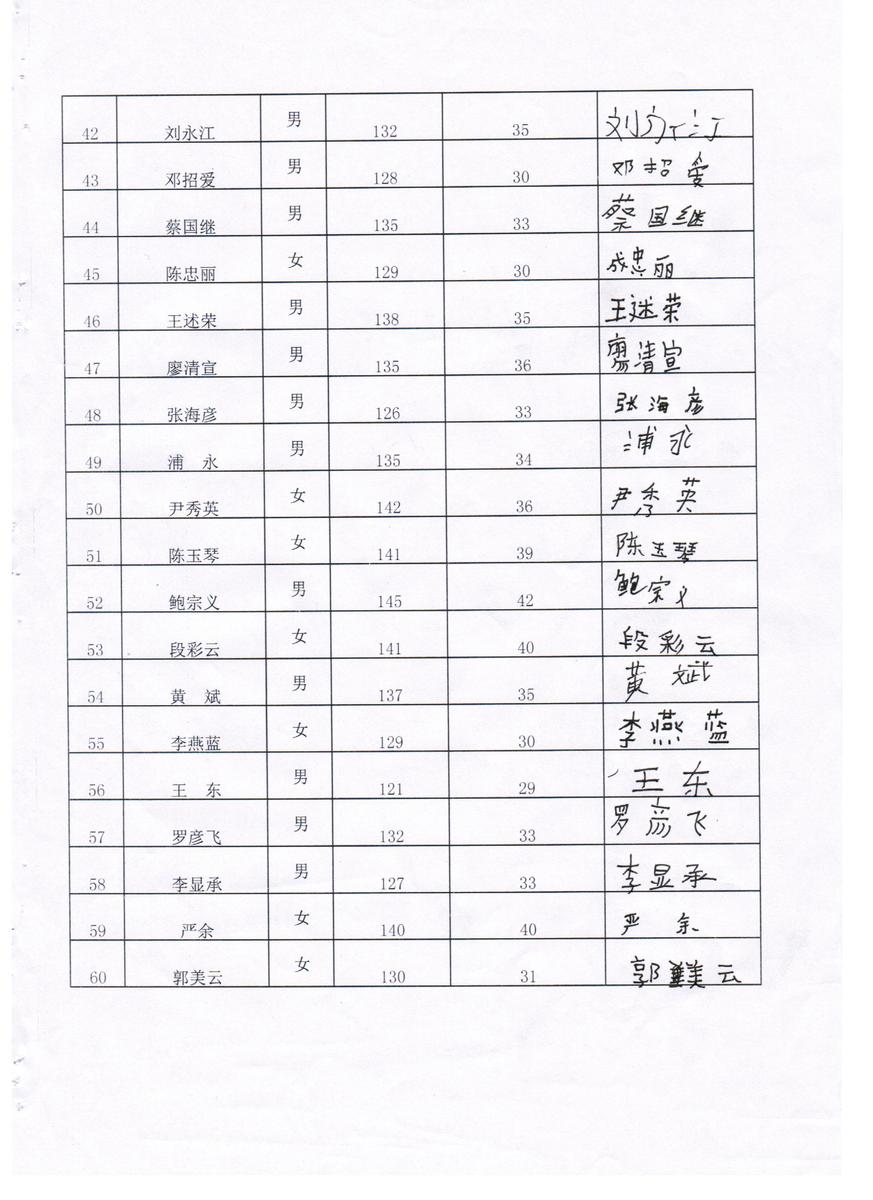 42 刘永江 男 132 35 刘永江
43 邓招爱 男 128 30 邓招爱
44 蔡国继 男 135 33 蔡国继
45 陈忠丽 女 129 30 忠丽
46 王述荣 男 138 35 王述荣
47 廖清宣 男 135 36 廖清宣
48 张海彦 男 126 33 张海彦
49 浦 永 男 135 34 浦永
50 尹秀英 女 142 36 尹秀英
51 陈玉琴 女 141 39 陈玉琴
52 鲍宗义 男 145 42 鲍宗义
53 段彩云 女 141 40 段彩云
54 黄 斌 男 137 35 黄斌
55 李燕蓝 女 129 30 李燕蓝
56 王 东 男 121 29 王东
57 罗彦飞 男 132 33 罗彦飞
58 李显承 男 127 33 李显承
59 严余 女 140 40 严余
60 郭美云 女 130 31 郭美云